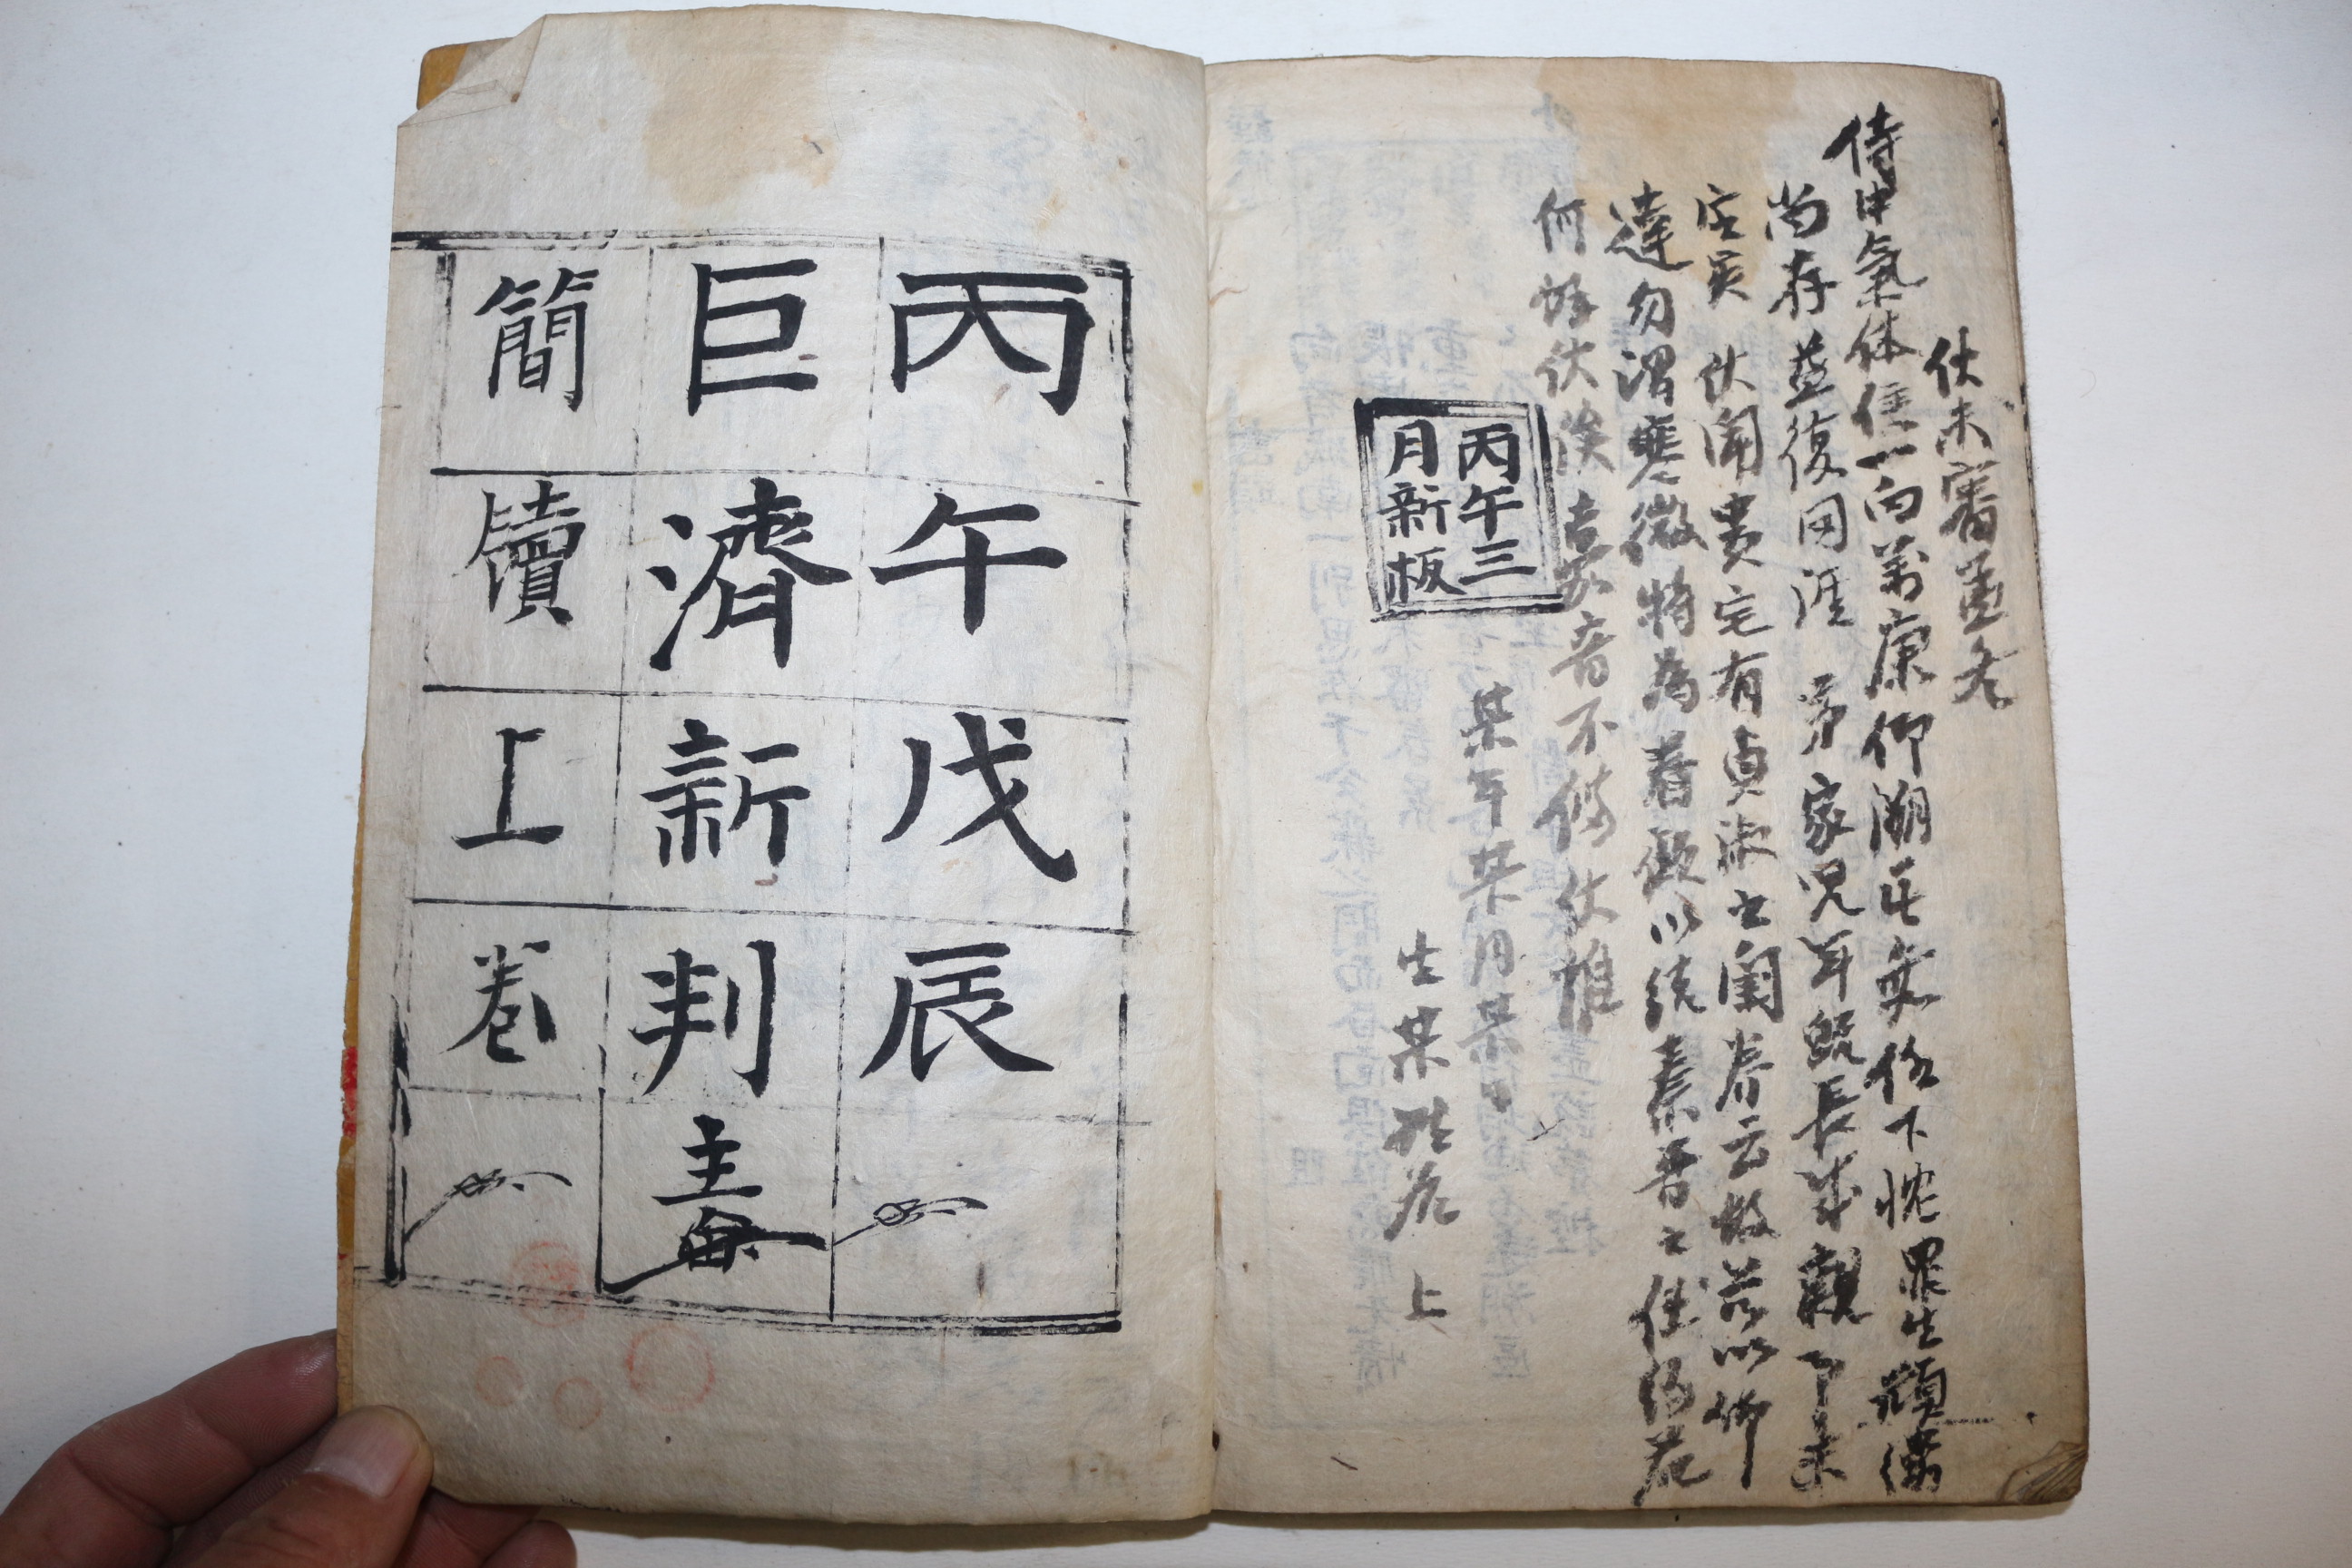 伏未審孟冬
侍中氣体候一向萬康仰溯區〻下忱罪生頑縷
尚存益復罔涯 家兒年既長成親事未
定矣 伏聞貴宅有貞淑之閨养云故茲以仰
達勿謂寒微特為眷顧以結秦晉之佳約若
何如伏俟 音不備伏惟
某年某月某日
生某 上
丙午三
月新板
丙午戊辰
巨濟新判
簡牘上卷